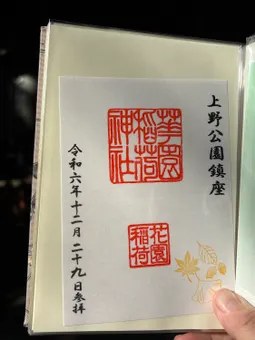 上野公園鎮座
華園
稲荷
神社
花園
稲荷
令和六年十二月二十九日参拝